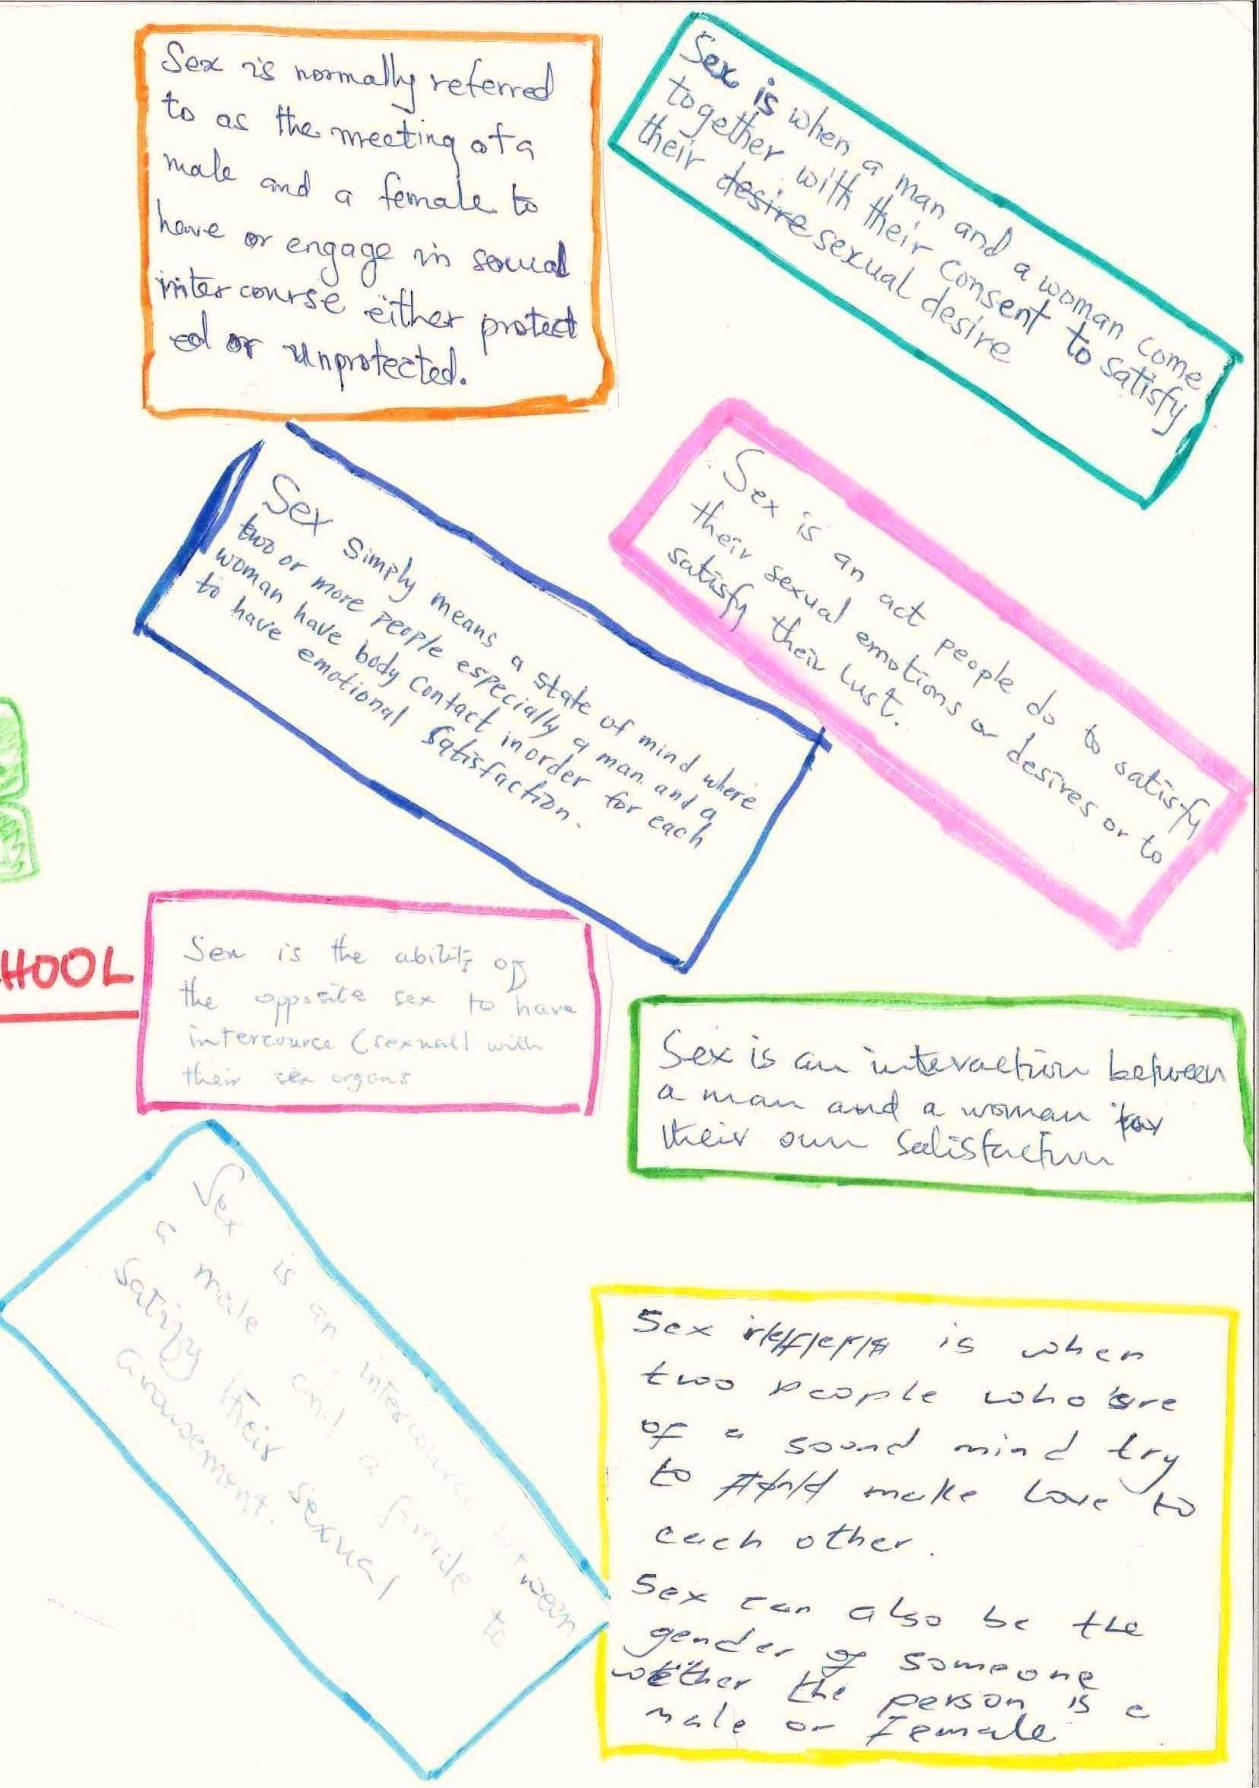 Sex is normally referred
to as the meeting of a
male and a female to
have or engage in sexual
inter course either protect
ed or unprotected.
Sex is when a man and a woman come
together with their consent to satisfy
their desire sexual desire
Sex simply means a state of mind where
two or more people especially a man and a
woman have body contact inorder for each
to have emotional satisfaction.
Sex is an act people do to satisfy
their sexual emotions or desires or to
satisfy their lust.
HOOL
Sex is the ability of
the opposite sex to have
intercource (sexual) with
their sex organs
Sex is an interaction between
a man and a woman for
their own satisfaction
Sex is an intercourse between
a male and a female to
satizfy their sexual
arousement.
Sex reffers is when
two people who are
of a sound mind try
to make love to
each other.
Sex can also be the
gender of someone
wether the person is a
male or Female